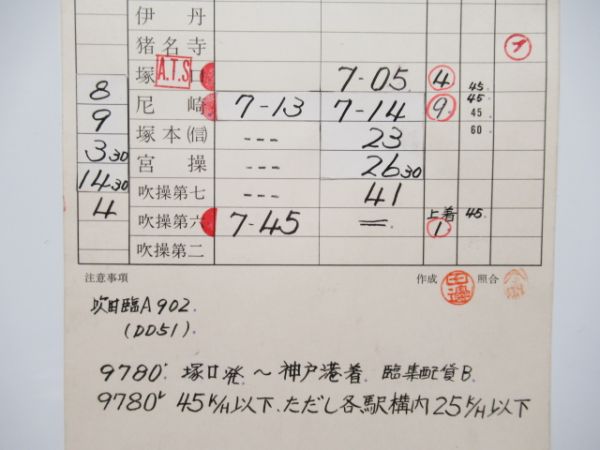 伊丹
猪名寺
塚口 A.T.S 7-05 4 45
8
尼崎 7-13 7-14 9 45 45
9
塚本(信) --- 23 60
3 30
宮操 --- 26 30
14 30
吹操第七 --- 41
4
吹操第六 7-45 = 上着 1 45
吹操第二
注意事項 作成 田邊 照合
吹田臨A902.
(DD51).
9780 塚口発 ~ 神戸港着. 臨集配貨B.
9780 45K/H以下. ただし各駅構内25K/H以下